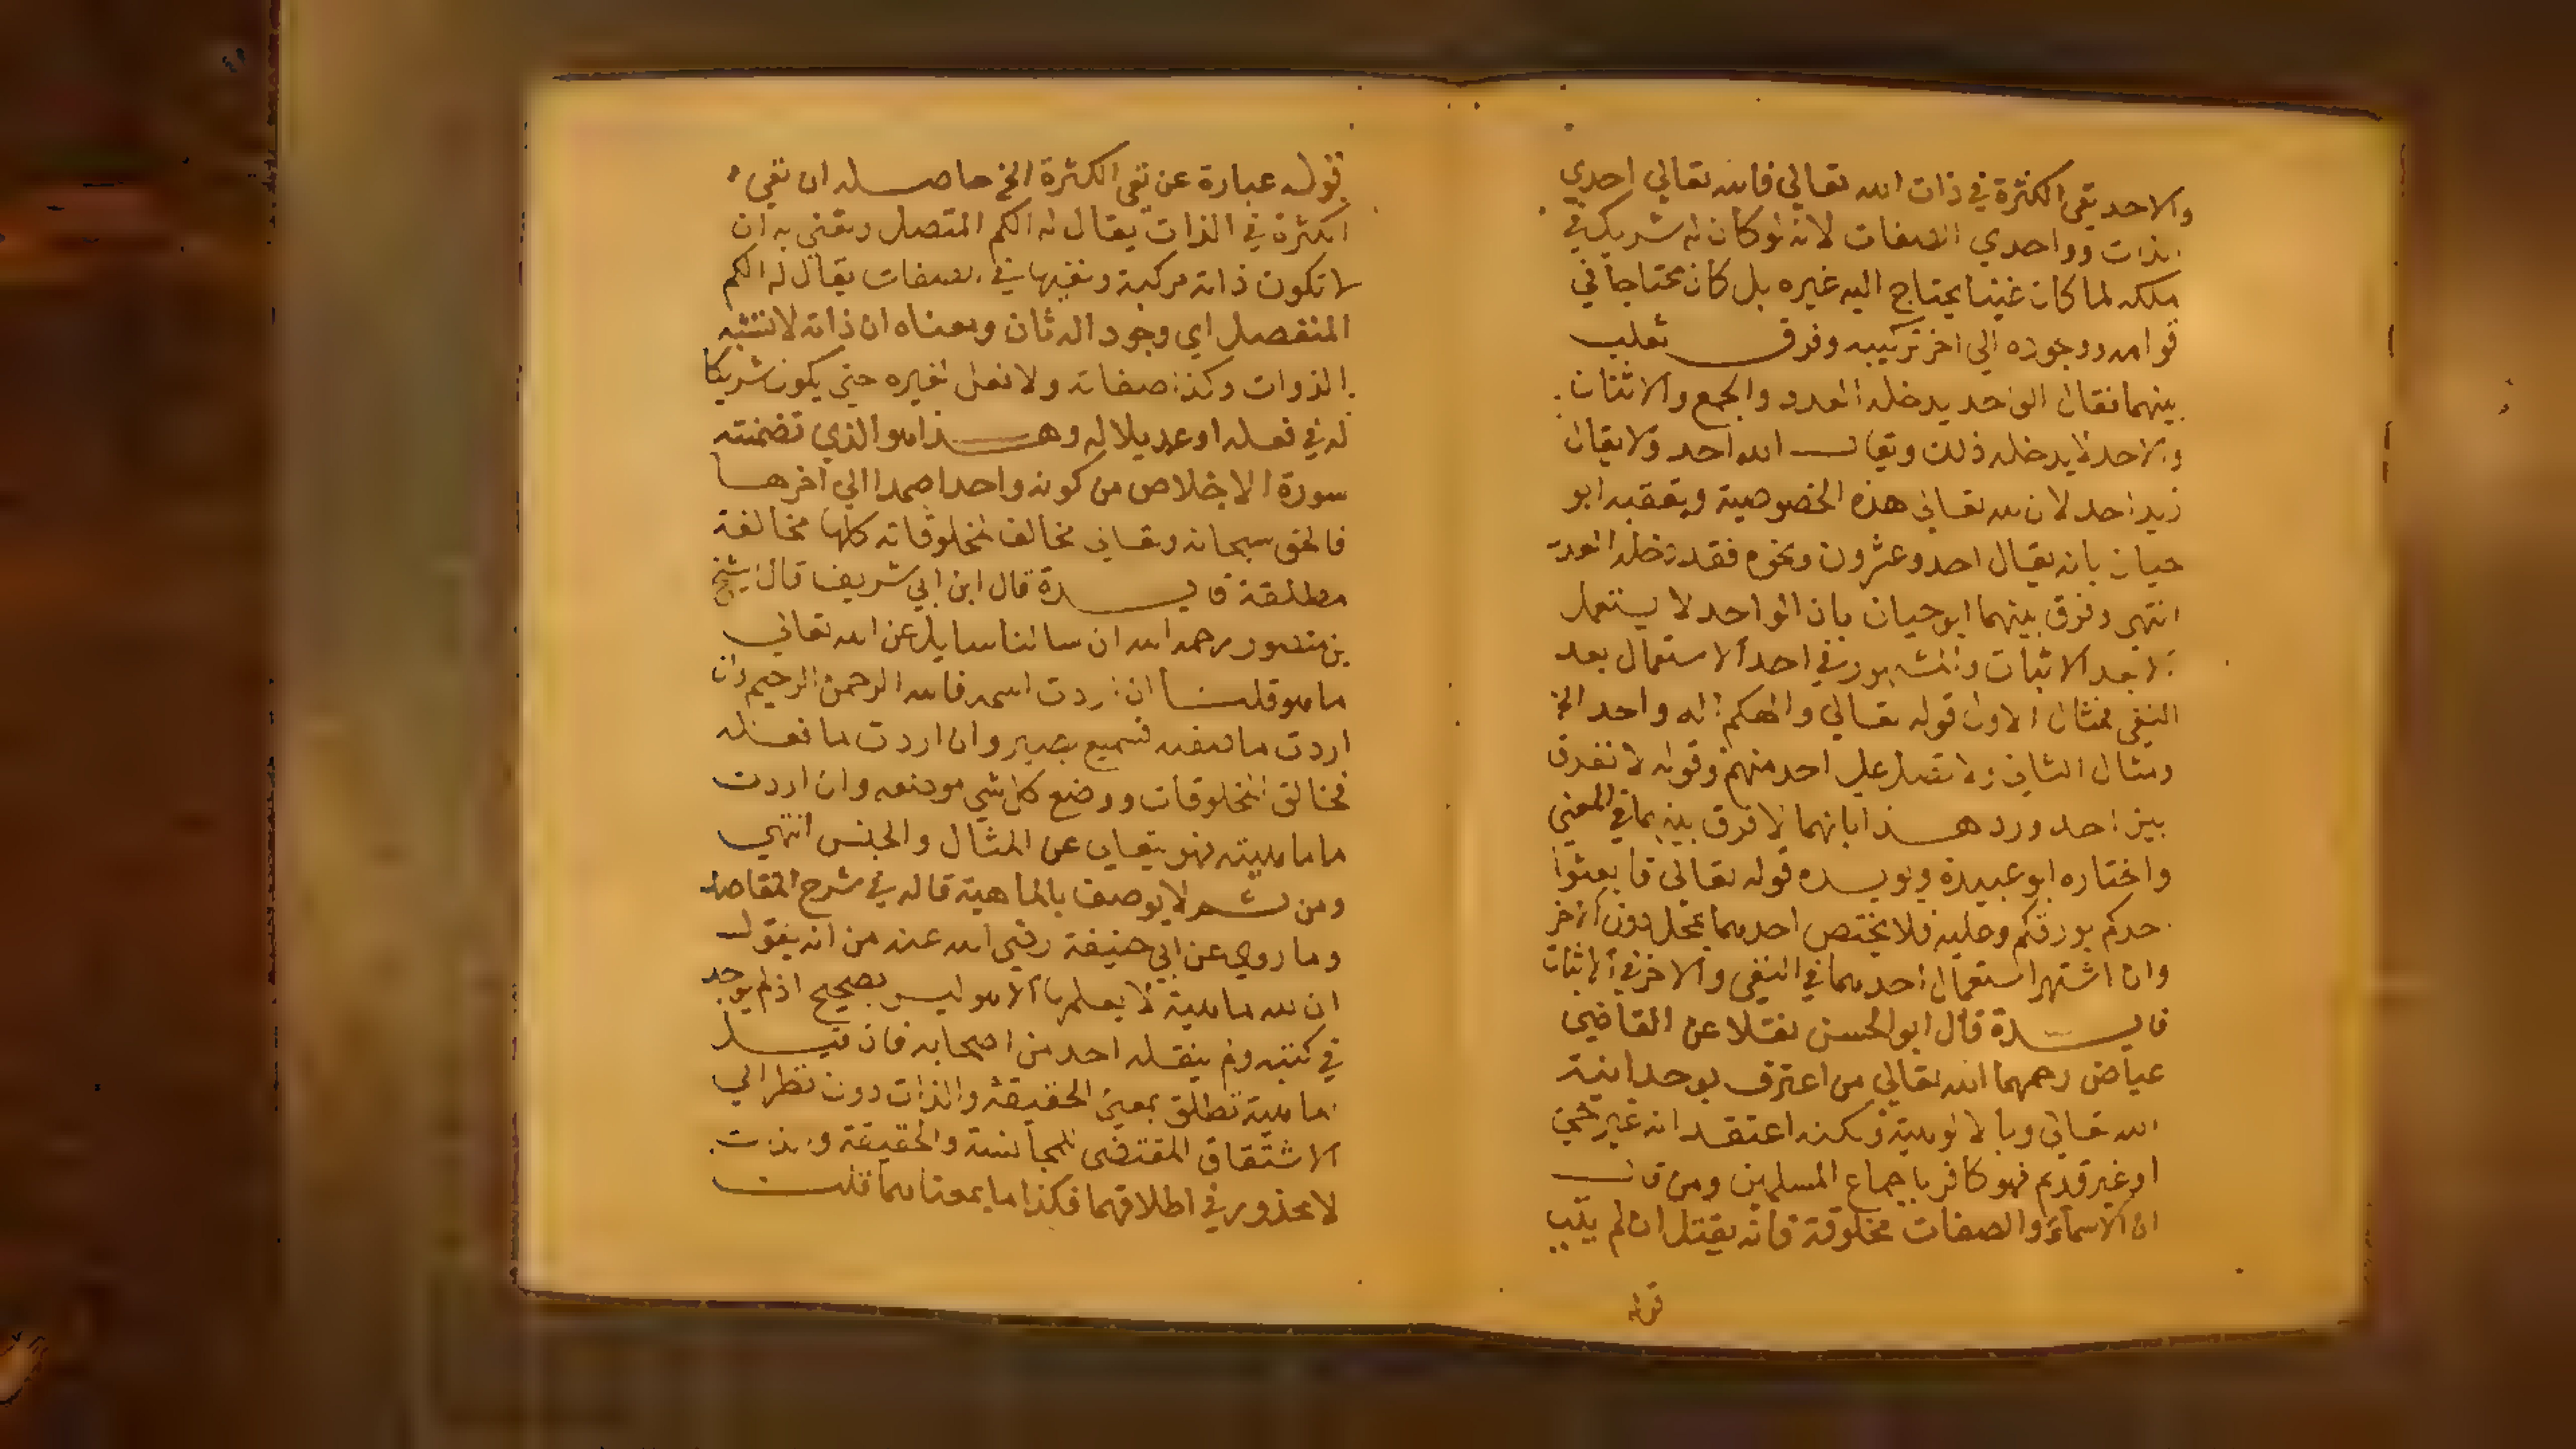 والاحد نفي الكثرة في ذات الله تعالي فالله تعالي احدي
الذات وواحدي الصفات لانه لو كان له شريك في
ملكه لما كان غنيا يحتاج اليه غيره بل كان محتاجا في
قوامه ووجوده الي اخر تركيبه وفرق ثعلب
بينهما فقال الواحد يدخله العدد والجمع والاثنان
والاحد لا يدخله ذلك ويقال الله احد ولا يقال
زيد احد لان لله تعالي هذه الخصوصية وتعقبه ابو
حيان بانه يقال احد وعشرون ونحوه فقد دخله العدد
انتهي وفرق بينهما ابو حيان بان الواحد لا يستعمل
الا بعد الاثبات والمشهور في احد الاستعمال بعد
النفي فمثال الاول قوله تعالي والهكم اله واحد الخ
ومثال الثاني ولا تصل علي احد منهم وقوله لا نفرق
بين احد ورد هذا بانهما لا فرق بينهما في المعني
واختاره ابو عبيدة ويويده قوله تعالي فابعثوا
احدكم بورقكم وعليه فلا يختص احدهما بمحل دون الاخر
وان اشتهر استعمال احدهما في النفي والاخر في الاثبات
فايدة قال ابو الحسن نقلا عن القاضي
عياض رحمهما الله تعالي من اعترف بوحدانية
الله تعالي وبالالوهية ولكنه اعتقد انه غير حي
او غير قديم فهو كافر باجماع المسلمين ومن قال
ان الاسماء والصفات مخلوقة فانه يقتل ان لم يتب
قوله
قوله عبارة عن نفي الكثرة الخ حاصله ان نفي
الكثرة في الذات يقال له الكم المتصل ونعني به ان
لا تكون ذاته مركبة ونفيها في الصفات يقال له الكم
المنفصل اي وجود اله ثان ومعناه ان ذاته لا تشبه
الذوات وكذا صفاته ولا فعل لغيره حتي يكون شريكا
له في فعله او عديلا له وهذا هو الذي تضمنته
سورة الاخلاص من كونه واحدا صمدا الي اخرها
فالحق سبحانه وتعالي مخالف لمخلوقاته كلها مخالفة
مطلقة فايدة قال ابن ابي شريف قال الشيخ
بن منصور رحمه الله ان سالنا سايل عن الله تعالي
ما هو قلنا ان اردت اسمه فالله الرحمن الرحيم وان
اردت ما صفته فسميع بصير وان اردت ما فعله
فخالق المخلوقات ووضع كل شي موضعه وان اردت
ما ماهيته فهو متعالي عن المثال والجنس انتهي
ومن ثم لا يوصف بالماهية قاله في شرح المقاصد
وما روي عن ابي حنيفة رضي الله عنه من انه يقول
ان لله ماهية لا يعلمها الا هو ليس بصحيح اذ لم يوجد
في كتبه ولم ينقله احد من اصحابه فان قيل
الماهية تطلق بمعني الحقيقة والذات دون نظر الي
الاشتقاق المقتضي للمجانسة والحقيقة والذات
لا محذور في اطلاقهما فكذا ما بمعناهما قلت